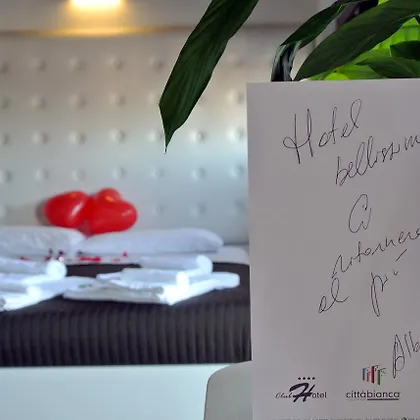 Hotel
bellissim
Ci
ritornere
al più
Alb
Club Hotel
cittàbianca